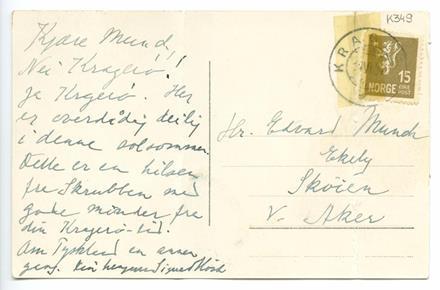 K349
Kjære Munch,
Nei Kragerø!
Ja Kragerø. Her
er overdådig deilig
i denne solsommer.
Dette er en hilsen
fra Skrubben med
gode minder fra
din Kragerø-tid.
Om Tyskland en annen
gang. Din hengivne
KRA
15
NORGE
ØRE
POST
Hr. Edvard Munch
Ekely
Skøien
V. Aker